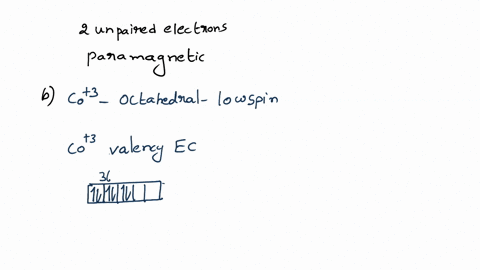 2 unpaired electrons
paramagnetic
b) Co+3 - octahedral - low spin
Co+3 valency EC